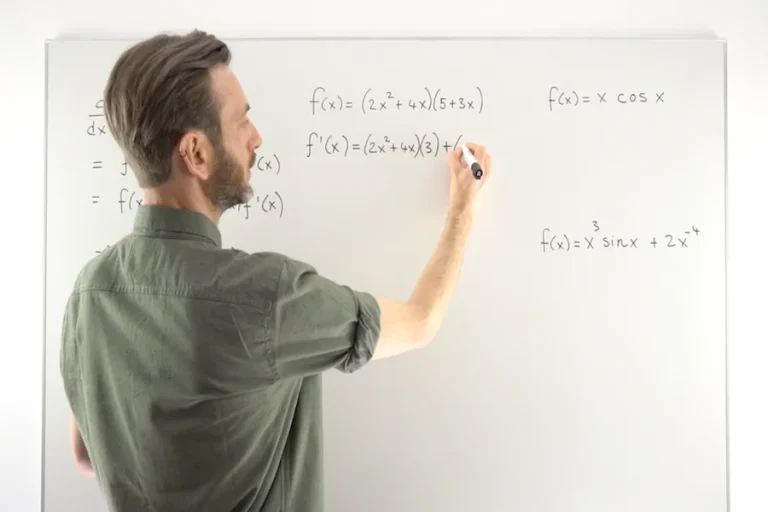 d
dx
= f (x)
= f(x f'(x)
f(x) = (2x² + 4x)(5+3x)
f'(x) = (2x²+4x)(3)+(
f(x) = x cos x
f(x) = x³ sinx + 2x⁻⁴